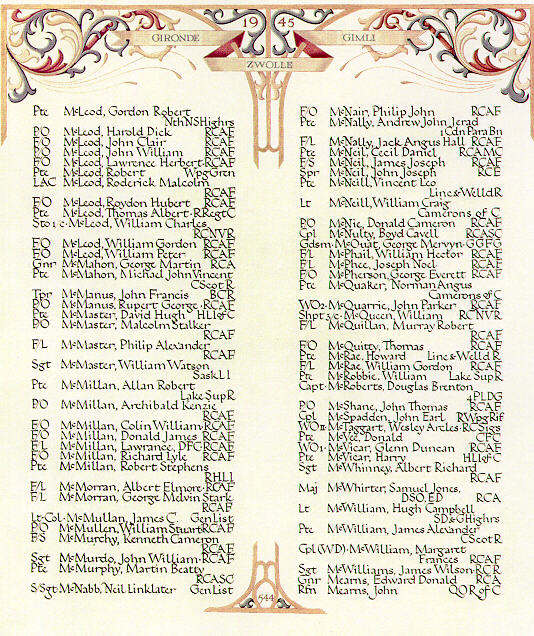 19 45
GIRONDE GIMLI
ZWOLLE
Pte McLeod, Gordon Robert
NthNSHighrs
P/O McLeod, Harold Dick RCAF
F/O McLeod, John Clair RCAF
P/O McLeod, John William RCAF
F/O McLeod, Lawrence Herbert·RCAF
Pte McLeod, Robert WpgGren
LAC McLeod, Roderick Malcolm
RCAF
F/O McLeod, Roydon Hubert RCAF
Pte McLeod, Thomas Albert·RRegtC
Sto 1/c·McLeod, William Charles
RCNVR
F/O McLeod, William Gordon RCAF
F/O McLeod, William Peter RCAF
Gnr McMahon, George Martin RCA
Pte McMahon, Michael John Vincent
CScotR
Tpr McManus, John Francis BCR
P/O McManus, Rupert George·RCAF
Pte McMaster, David Hugh HLIofC
P/O McMaster, Malcolm Stalker
RCAF
F/L McMaster, Philip Alexander
RCAF
Sgt McMaster, William Watson
SaskLI
Pte McMillan, Allan Robert
Lake Sup R
P/O McMillan, Archibald Kenzie
RCAF
F/O McMillan, Colin William·RCAF
F/O McMillan, Donald James RCAF
F/L McMillan, Lawrance, DFC·RCAF
P/O McMillan, Richard Lyle RCAF
Pte McMillan, Robert Stephens
RHLI
F/L McMorran, Albert Elmore·RCAF
F/L McMorran, George Melvin Stark
RCAF
Lt-Col·McMullan, James C. GenList
P/O McMullen, William Stuart·RCAF
F/S McMurchy, Kenneth Cameron
RCAF
Sgt McMurdo, John William·RCAF
Pte McMurphy, Martin Beatty
RCASC
S/Sgt·McNabb, Neil Linklater GenList
F/O McNair, Philip John RCAF
Pte McNally, Andrew John Jerad
1CdnParaBn
F/L McNally, Jack Angus Hall RCAF
Pte McNeil, Cecil Daniel RCAMC
F/S McNeil, James Joseph RCAF
Spr McNeil, John Joseph RCE
Pte McNeill, Vincent Leo
Linc&WelldR
Lt McNeill, William Craig
Camerons of C
P/O McNie, Donald Cameron RCAF
Cpl McNulty, Boyd Cavell RCASC
Gdsm·McOuat, George Mervyn·GGFG
F/L McPhail, William Hector RCAF
F/L McPhee, Joseph Noel RCAF
F/O McPherson, George Everett RCAF
Pte McQuaker, Norman Angus
Camerons of C
WO2·McQuarrie, John Parker RCAF
Shpt 5/c·McQueen, William RCNVR
F/L McQuillan, Murray Robert
RCAF
F/O McQuitty, Thomas RCAF
Pte McRae, Howard Linc&WelldR
F/L McRae, William Gordon RCAF
Pte McRobbie, William Lake Sup R
Capt·McRoberts, Douglas Brenton
4PLDG
P/O McShane, John Thomas RCAF
Cpl McSpadden, John Earl RWpgRif
WOII·McTaggart, Wesley Arcles·RCSigs
Pte McVee, Donald CPC
WO1·McVicar, Glen Duncan RCAF
Pte McVicar, Harry HLIofC
Sgt McWhinney, Albert Richard
RCAF
Maj McWhirter, Samuel Jones,
DSO, ED RCA
Lt McWilliam, Hugh Campbell
SD&GHighrs
Pte McWilliam, James Alexander
CScotR
Cpl (WD)·McWilliam, Margaret
Frances RCAF
Sgt McWilliams, James Wilson·RCR
Gnr Mearns, Edward Donald RCA
Rfn Mearns, John QORofC
544